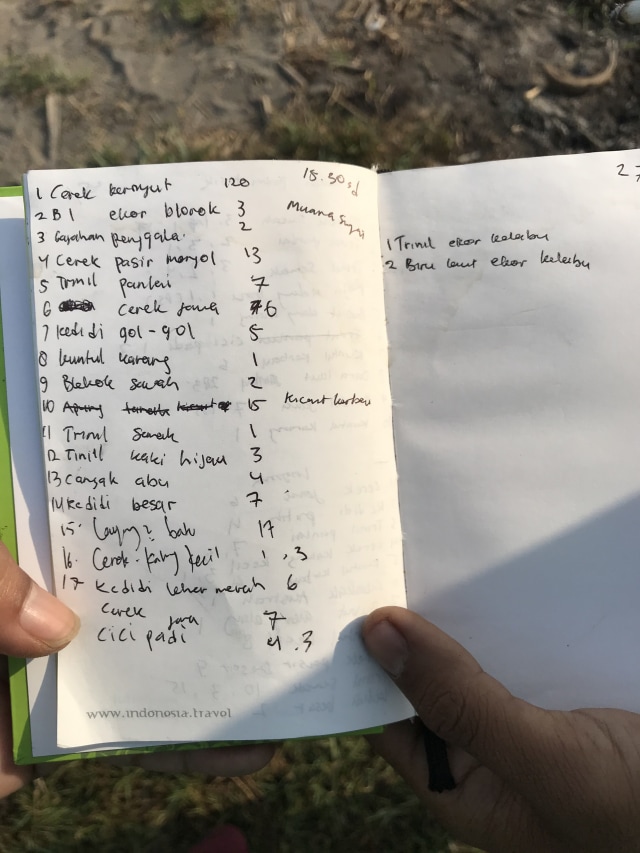 1 Cerek kernyut 120 18.30 sd
2 B l ekor blorok 3 Muara
3 Gajahan penggala 2
4 Cerek pasir mongol 13
5 Trinil pantai 7
6 cerek jawa 6
7 kedidi gol-gol 5
8 kuntul karang 1
9 Blekok sawah 2
10 15 kicuit kerbau
11 Trinil Semak 1
12 Tinil kaki hijau 3
13 cangak abu 4
14 kedidi besar 7
15. Layang2 batu 17
16. Cerek. kalung kecil 1, 3
17 kedidi leher merah 6
Cerek jawa 7
Cici padi 4.3
www.indonesia.travel
27
1 Trinil ekor kelabu
2 Biru laut ekor kelabu